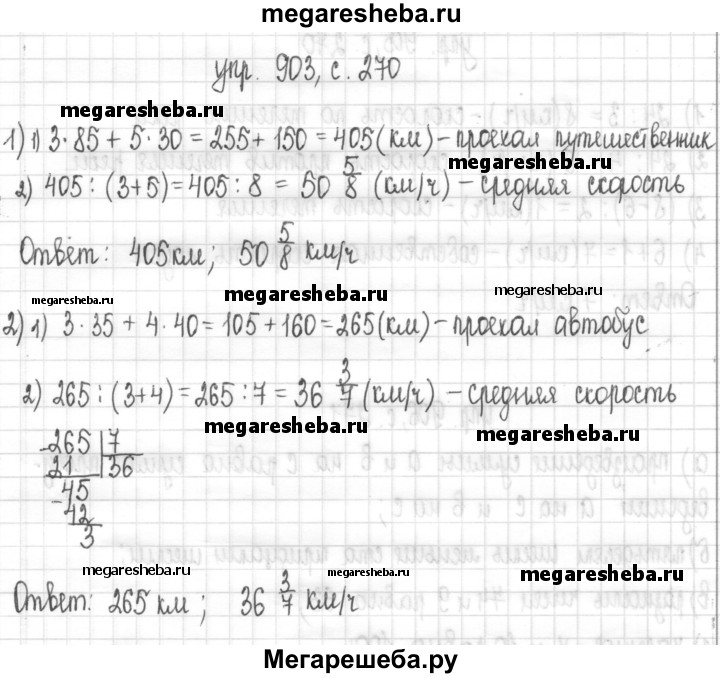 megaresheba.ru
упр. 903, с. 270
megaresheba.ru
1) 1) 3·85 + 5·30 = 255 + 150 = 405 (км) – проехал путешественник
megaresheba.ru
2) 405 : (3+5) = 405 : 8 = 50 5/8 (км/ч) – средняя скорость
Ответ: 405 км; 50 5/8 км/ч
megaresheba.ru megaresheba.ru megaresheba.ru
2) 1) 3·35 + 4·40 = 105 + 160 = 265 (км) – проехал автобус
2) 265 : (3+4) = 265 : 7 = 36 3/7 (км/ч) – средняя скорость
megaresheba.ru megaresheba.ru
-265 | 7
21 | 36
-45
42
3
megaresheba.ru megaresheba.ru megaresheba.ru
Ответ: 265 км; 36 3/7 км/ч
Мегарешеба.ру